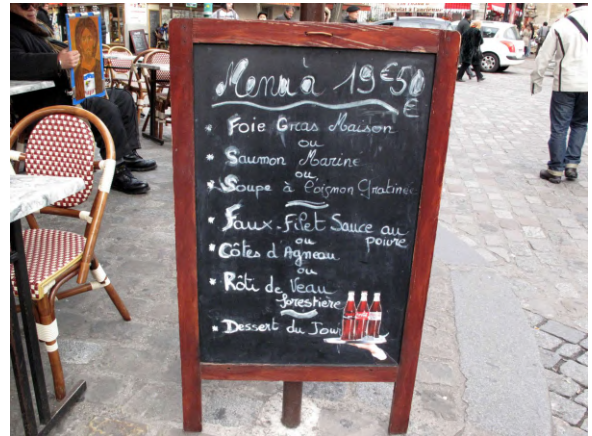 Chocolat à l'ancienne
Menu à 19€50
€
* Foie Gras Maison
ou
* Saumon Marine
ou
* Soupe à l'oignon Gratinée
* Faux-Filet Sauce au
poivre
ou
* Côtes d'Agneau
ou
* Rôti de Veau
forestière
* Dessert du Jour